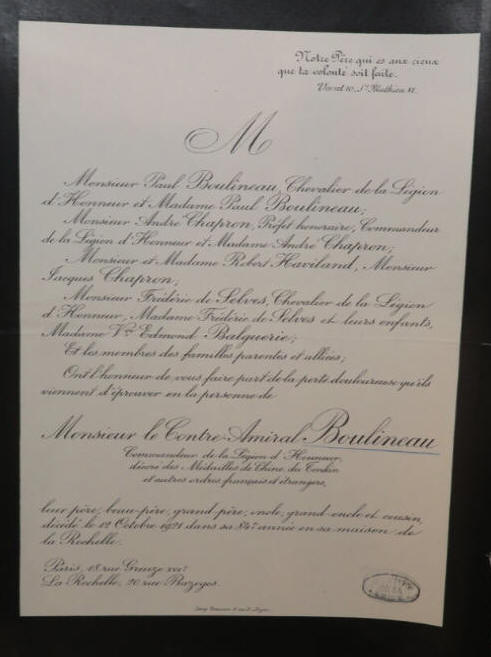 Notre Père qui es aux cieux
que ta volonté soit faite.
Verset 10, St Mathieu VI.
M
Monsieur Paul Boulineau, Chevalier de la Légion
d'Honneur et Madame Paul Boulineau;
Monsieur André Chapron, Préfet honoraire, Commandeur
de la Légion d'Honneur et Madame André Chapron;
Monsieur et Madame Robert Haviland, Monsieur
Jacques Chapron;
Monsieur Frédéric de Selves, Chevalier de la Légion
d'Honneur, Madame Frédéric de Selves et leurs enfants,
Madame Vve Edmond Balguerie;
Et les membres des familles parentes et alliées;
Ont l'honneur de vous faire part de la perte douloureuse qu'ils
viennent d'éprouver en la personne de
Monsieur le Contre-Amiral Boulineau
Commandeur de la Légion d'Honneur,
décoré des Médailles de Chine, du Tonkin
et autres ordres français et étrangers,
leur père, beau-père, grand-père, oncle, grand-oncle et cousin,
décédé le 12 Octobre 1921 dans sa 84e année en sa maison de
la Rochelle.
Paris, 18 rue Greuze XVIe
La Rochelle, 20 rue Bazoges.